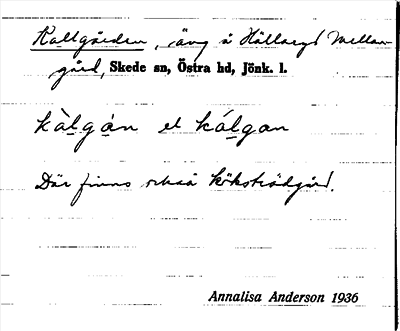 Kallgården, äng å Hållaryd Mellan-
gård, Skede sn, Östra hd, Jönk. l.
kàlgàn el kálgan
Där finns också köksträdgård.
Annalisa Anderson 1936